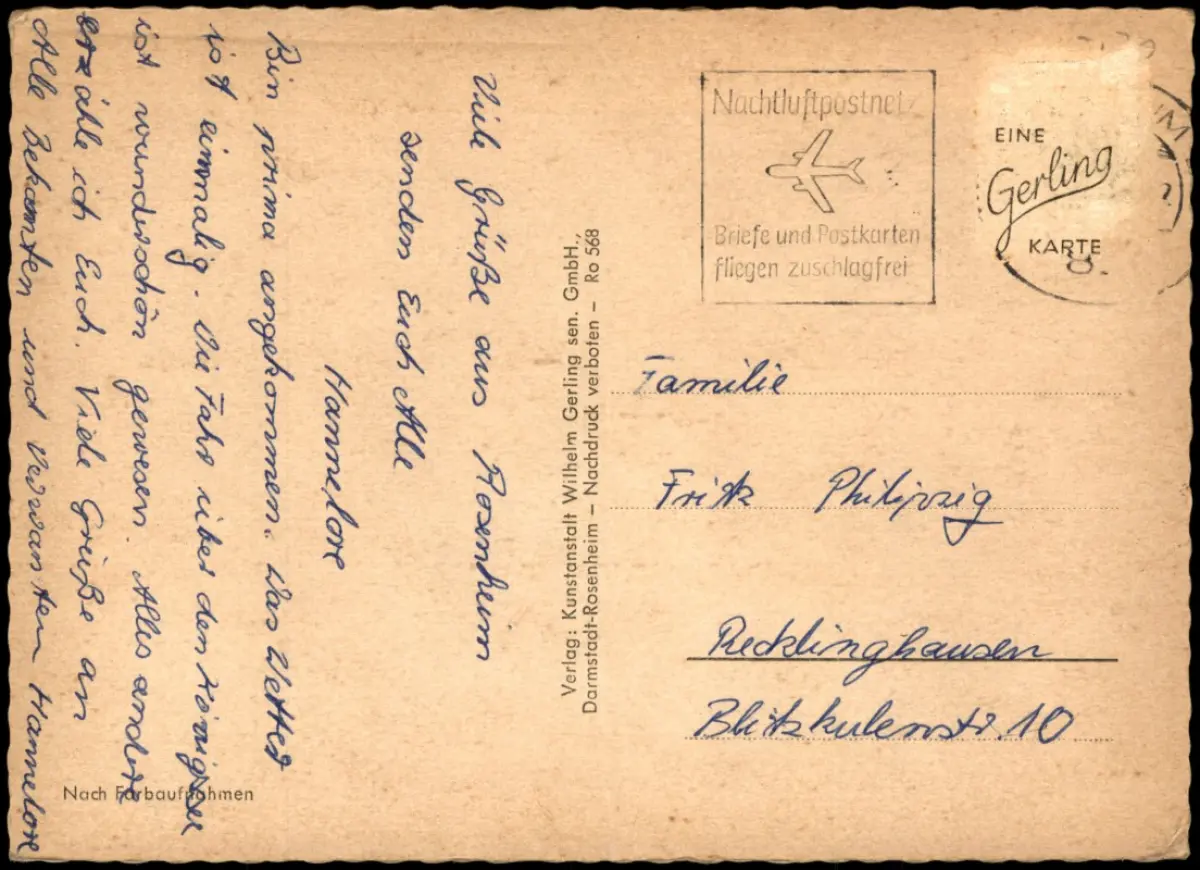 Viele Grüße aus Rosenheim
senden Euch Alle
Hannelore
Bin prima angekommen. Das Wetter
ist einmalig. Die Fahrt über den
ist wunderschön gewesen. Alles andere
erzähle ich Euch. Viele Grüße an
Alle Bekannten und Verwanten Hannelore
Nach Farbaufnahmen
Verlag: Kunstanstalt Wilhelm Gerling sen. GmbH.,
Darmstadt-Rosenheim – Nachdruck verboten – Ro 568
Nachtluftpostnetz
Briefe und Postkarten
fliegen zuschlagfrei
EINE
Gerling
KARTE
Familie
Fritz Philipzig
Recklinghausen
Blitzkulenstr. 10